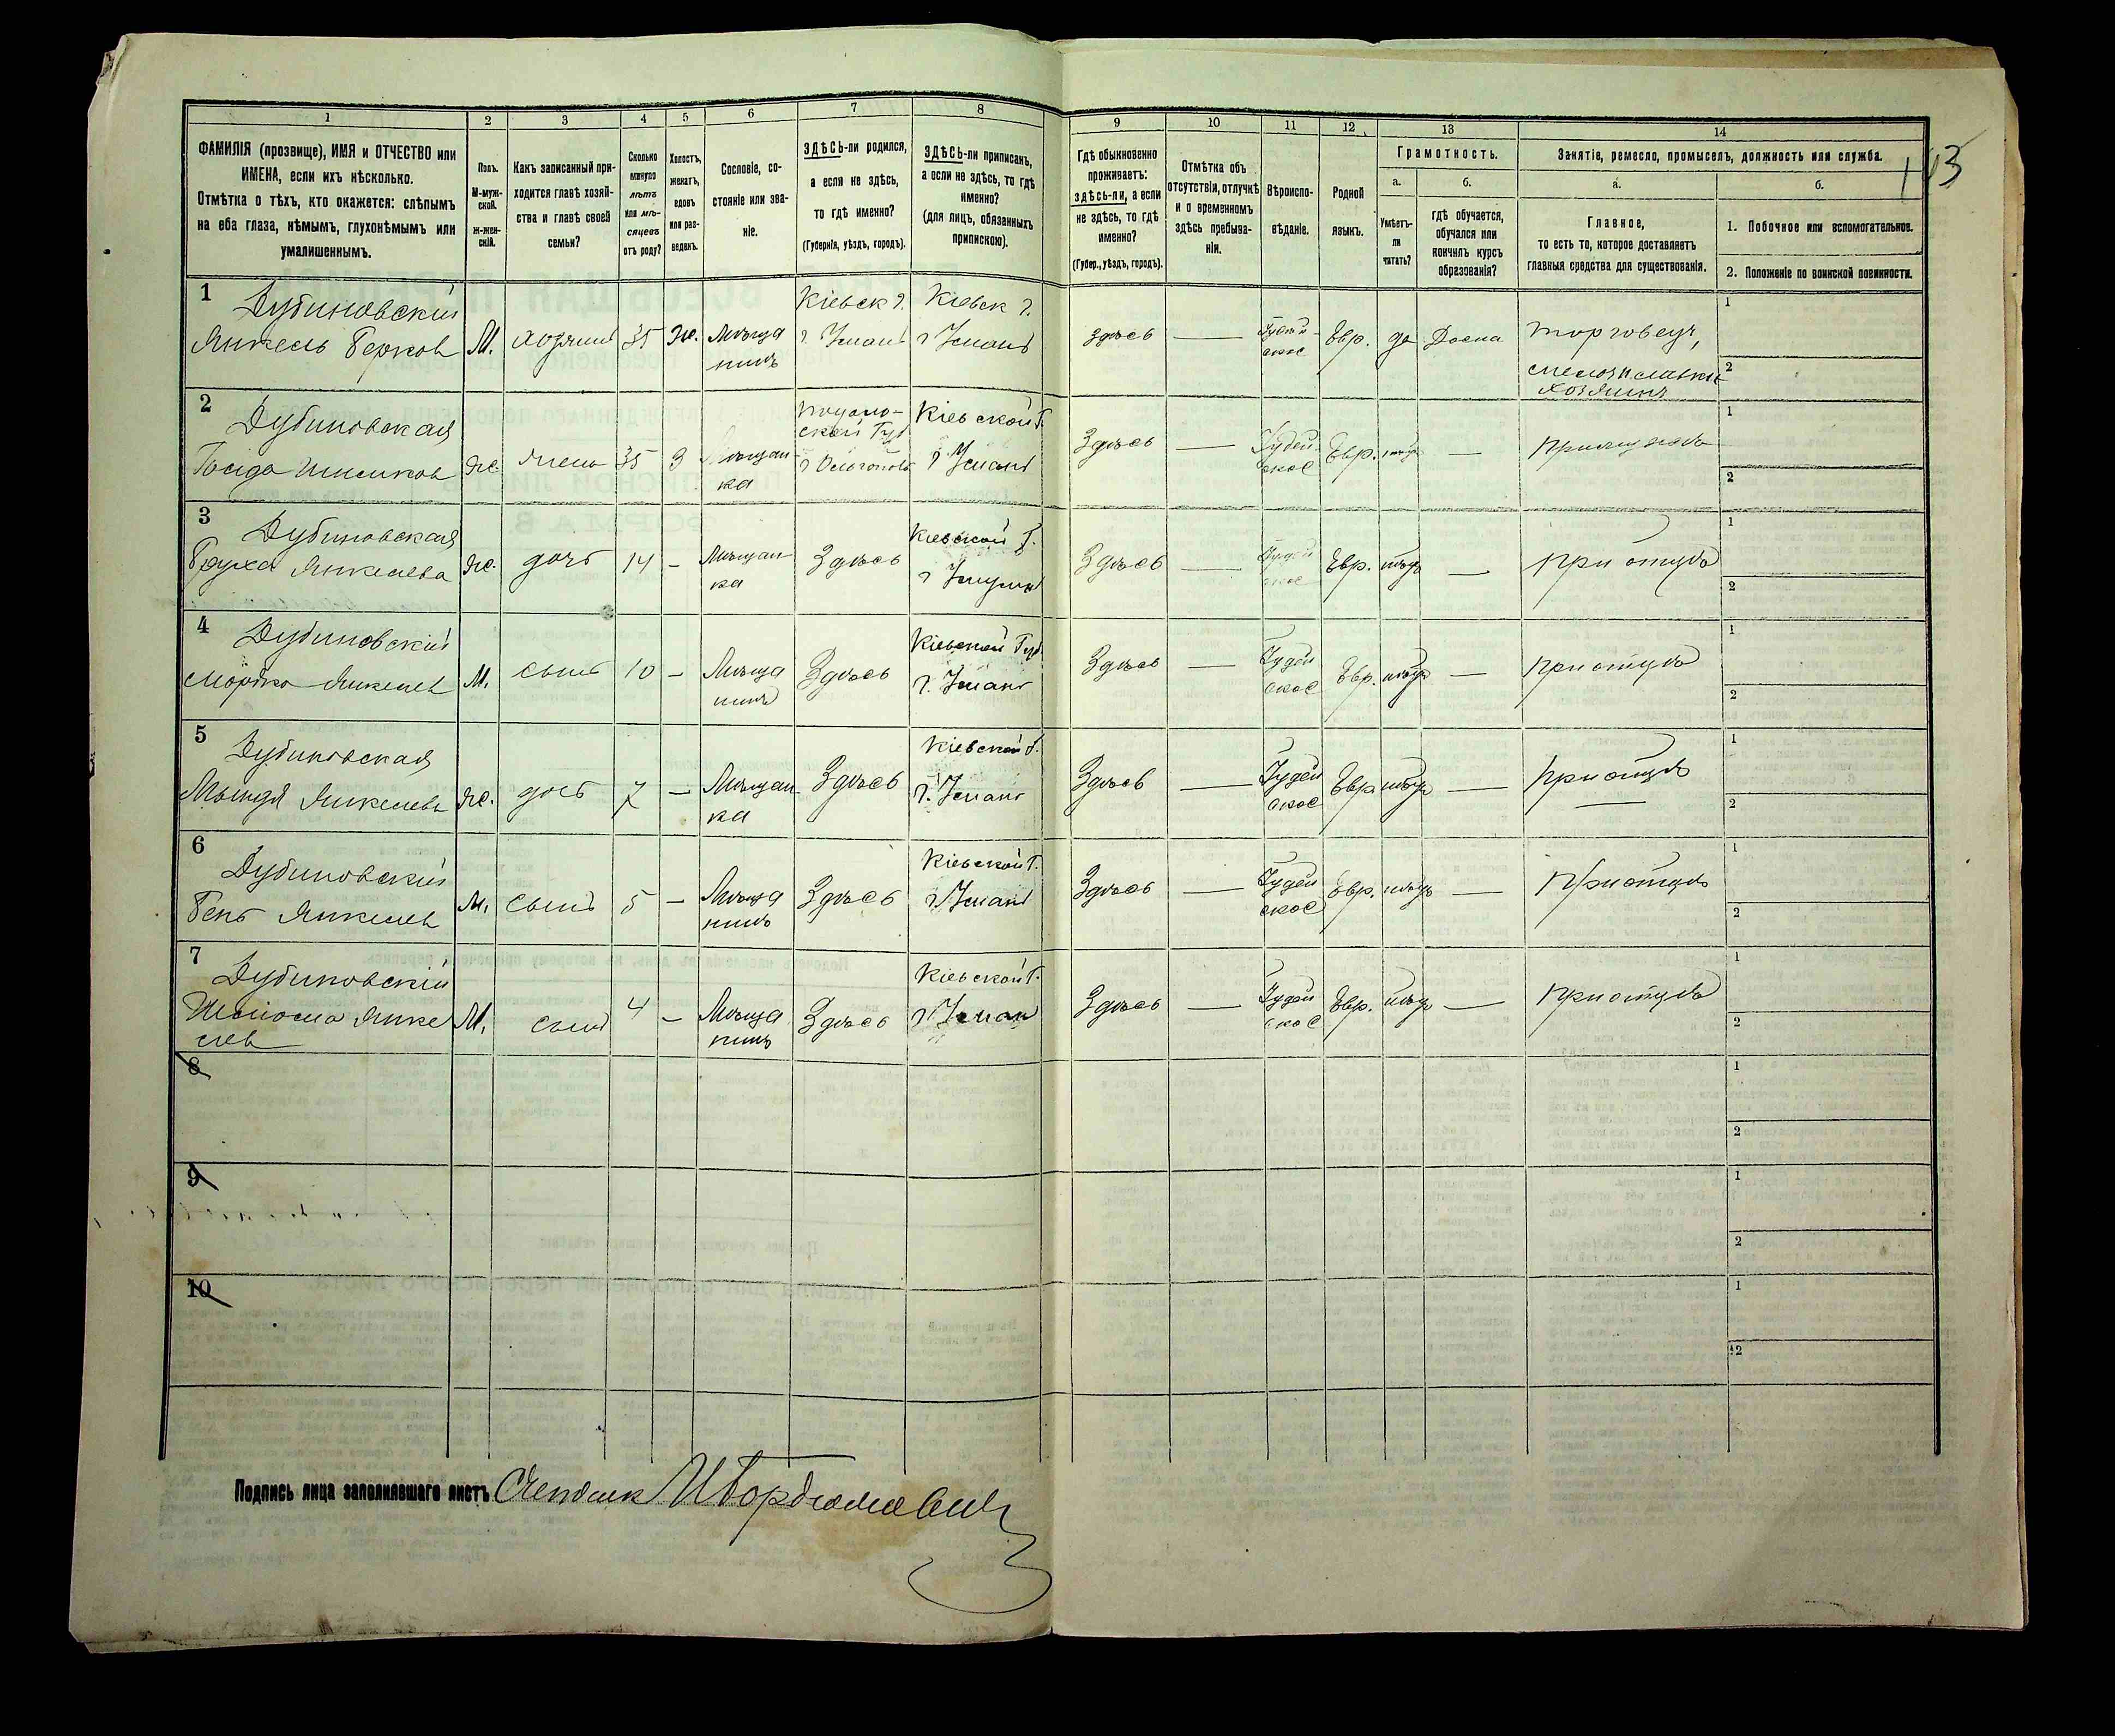 143
1 2 3 4 5 6 7 8 9 10 11 12 13 14
ФАМИЛІЯ (прозвище), ИМЯ и ОТЧЕСТВО или
ИМЕНА, если ихъ нѣсколько.
Отмѣтка о тѣхъ, кто окажется: слѣпымъ
на оба глаза, нѣмымъ, глухонѣмымъ или
умалишеннымъ.
Полъ.
М-муж-
ской.
Ж-жен-
скій.
Какъ записанный при-
ходится главѣ хозяй-
ства и главѣ своей
семьи?
Сколько
минуло
лѣтъ
или мѣ-
сяцевъ
отъ роду?
Холостъ,
женатъ,
вдовъ
или раз-
веденъ.
Сословіе, со-
стояніе или зва-
ніе.
ЗДѢСЬ-ли родился,
а если не здѣсь,
то гдѣ именно?
(Губернія, уѣздъ, городъ).
ЗДѢСЬ-ли приписанъ,
а если не здѣсь, то гдѣ
именно?
(для лицъ, обязанныхъ
припискою).
Гдѣ обыкновенно
проживаетъ:
здѣсь-ли, а если
не здѣсь, то гдѣ
именно?
(Губер., уѣздъ, городъ).
Отмѣтка объ
отсутствіи, отлучкѣ
и о временномъ
здѣсь пребыва-
ніи.
Вѣроиспо-
вѣданіе.
Родной
языкъ.
Грамотность.
а.
Умѣетъ-
ли
читать?
б.
гдѣ обучается,
обучался или
кончилъ курсъ
образованія?
Занятіе, ремесло, промыселъ, должность или служба.
а.
Главное,
то есть то, которое доставляетъ
главныя средства для существованія.
б.
1. Побочное или вспомогательное.
2. Положеніе по воинской повинности.
1 Дубиновскій Кіевск г. Кіевск г.
Янкель Берков М. хозяинъ 35 Ж. Мѣща г. Умань г Умань здѣсь — Іудей Евр. да Дома торговецъ, 1
нинъ ское хозяинъ 2
2 Дубиновская ской Губ Кіевской Г. 1
жена 35 З Мѣщан г Умань Здѣсь — Іудей Евр. —
ка ское 2
3 Дубиновская Кіевской Г. 1
Бруха Янкелева Ж. дочь 14 — Мѣщан Здѣсь г Умань Здѣсь — Іудей Евр. нѣтъ — При отцѣ
ка ское 2
4 Дубиновскій Кіевской Губ 1
Мортко Янкелев М. сынъ 10 — Мѣща Здѣсь г. Умань Здѣсь — Іудей Евр. нѣтъ — При отцѣ
нинъ ское 2
5 Дубиновская Кіевской Г. 1
Янкелева Ж. дочь 7 — Мѣщан Здѣсь г. Умань Здѣсь — Іудей Евр нѣтъ — При отцѣ
ка ское 2
6 Дубиновскій Кіевской Г. 1
Бень Янкелев М. сынъ 5 — Мѣща Здѣсь г Умань Здѣсь — Іудей Евр. нѣтъ — При отцѣ
нинъ ское 2
7 Дубиновскій Кіевской Г. 1
Янке М. сынъ 4 — Мѣща Здѣсь г Уман Здѣсь — Іудей Евр. нѣтъ — При отцѣ
лев нинъ ское 2
8 1
2
9 1
2
10 1
2
Подпись лица заполнявшаго листъ